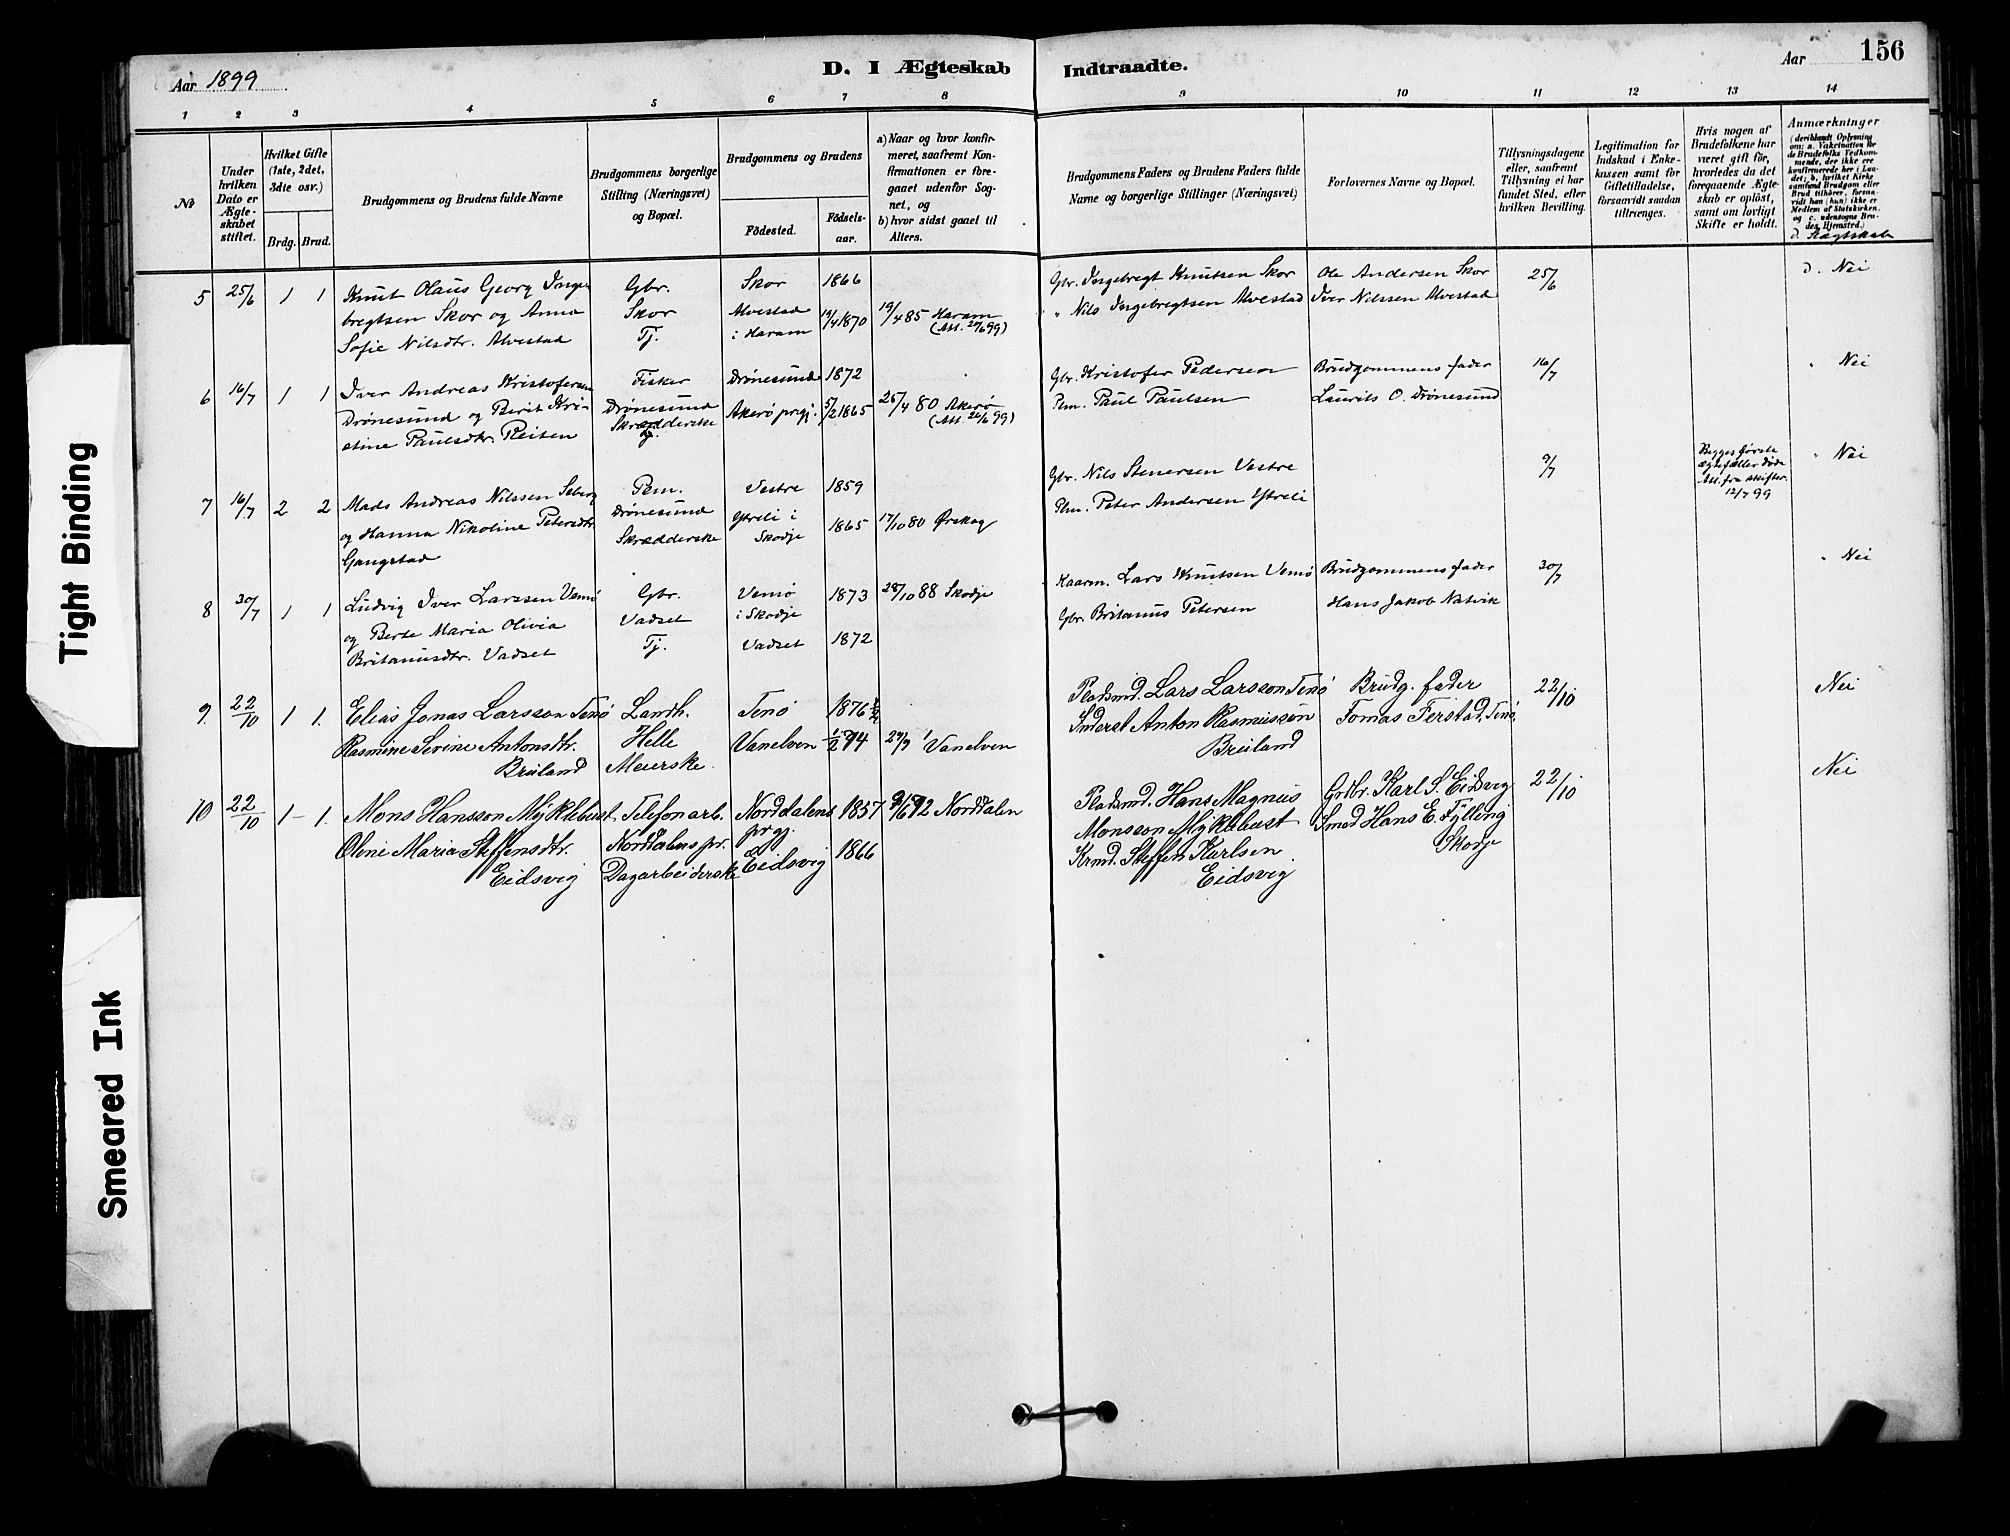 Tight Binding
Smeared Ink
Aar 1899
D. I Ægteskab Indtraadte.
Aar
156
1 2 3 4 5 6 7 8 9 10 11 12 13 14
No
Under hvilken Dato er Ægteskabet stiftet.
Hvilket Gifte (1ste, 2det, 3die osv.)
Brdg. Brud.
Brudgommens og Brudens fulde Navne
Brudgommens borgerlige Stilling (Næringsvei) og Bopæl.
Brudgommens og Brudens
Födested.
Födselsaar.
a) Naar og hvor konfirmeret, saafremt Konfirmationen er foregaaet udenfor Sognet, og
b) hvor sidst gaaet til Alters.
Brudgommens Faders og Brudens Faders fulde Navne og borgerlige Stillinger (Næringsvei)
Forlovernes Navne og Bopæl.
Tillysningsdagene eller, saafremt Tillysning ei har fundet Sted, efter hvilken Bevilling.
Legitimation for Indskud i Enkekassen samt for Giftetilladelse, forsaavidt saadan tiltrænges.
Hvis nogen af Brudefolkene har været gift för, hvorledes da det foregaaende Ægteskab er oplöst, samt om lovligt Skifte er holdt.
Anmærkninger (deriblandt Oplysning om: a. Vakcination for de Brudefolks Vedkommende, der ikke ere konfirmerede her i Landet; b. hvilket Kirkesamfund Brudgom eller Brud tilhörer, forsaavidt han (hun) ikke er Medlem af Statskirken, og c. udensogns Brudes Hjemsted.)
d. Slægtskab
5 25/6 1 1 Knut Olaus Georg Inge- Gbr. Skor 1866 Gbr. Ingebregt Knutsen Skor Ole Andersen Skor 25/6 d. Nei
bregtsen Skor og Anna Skor Alvestad 19/4 1870 19/4 85 Haram " Nils Ingebregtsen Alvestad Iver Nilssen Alvestad
Sofie Nilsdtr. Alvestad Tj. i Haram (Att. 24/6 99)
6 16/7 1 1 Iver Andreas Kristofersen Fisker Drönesund 1872 Gbr. Kristofer Pedersen Brudgommens fader 16/7 " Nei
Drönesund og Berit Kri- Drönesund Akerö prgj. 5/2 1865 25/4 80 Akerö Pem. Paul Paulsen Laurits O. Drönesund
stine Paulsdtr. Reiten Skrædderske (Att. 26/6 99)
7 16/7 2 2 Mads Andreas Nilssen Pem. Vestre 1859 Gbr. Nils Stenersen Vestre 9/7 Begges første ægtefæller døde Att. fra skifter. 12/7 99 " Nei
og Hanna Nikoline Petersdtr. Drönesund Ytreli i 1865 17/10 80 Ørskog Peter Andersen Ytreli
Gangstad Skrædderske Skodje
8 30/7 1 1 Ludvig Iver Larssen Vemö Gbr. Vemö 1873 28/10 88 Skodje Kaarm. Lars Knutsen Vemö Brudgommens fader 30/7 " Nei
og Berte Maria Olivia Vadset i Skodje Gbr. Britanus Petersen Hans Jakob Natvik
Britanusdtr. Vadset Tj. Vadset 1872
9 22/10 1 1. Elias Jonas Larsson Tenö Landh. Tenö 1876 Pladsmd. Lars Larsson Tenö Brudg. fader 22/10 Nei
Rasmine Sevine Antonsdtr. Helle Vanelven 74 Vanelven Inderst Anton Rasmussen Tomas Ferstad, Tenö
Bruland Meierske Bruland
10 22/10 1 - 1. Mons Hansson Myklebust Telefonarb. Norddalens 1857 72 Norddalen Pladsmd. Hans Magnus Grdbr. Karl S. Eidsvig 22/10 Nei
Oline Maria Steffensdtr. Norddalens pr. prgj. 1866 Monsson Myklebust Smed Hans E. Fylling
Eidsvig Dagarbeiderske Eidsvig Krmd. Steffen Karlsen Skodje
Eidsvig